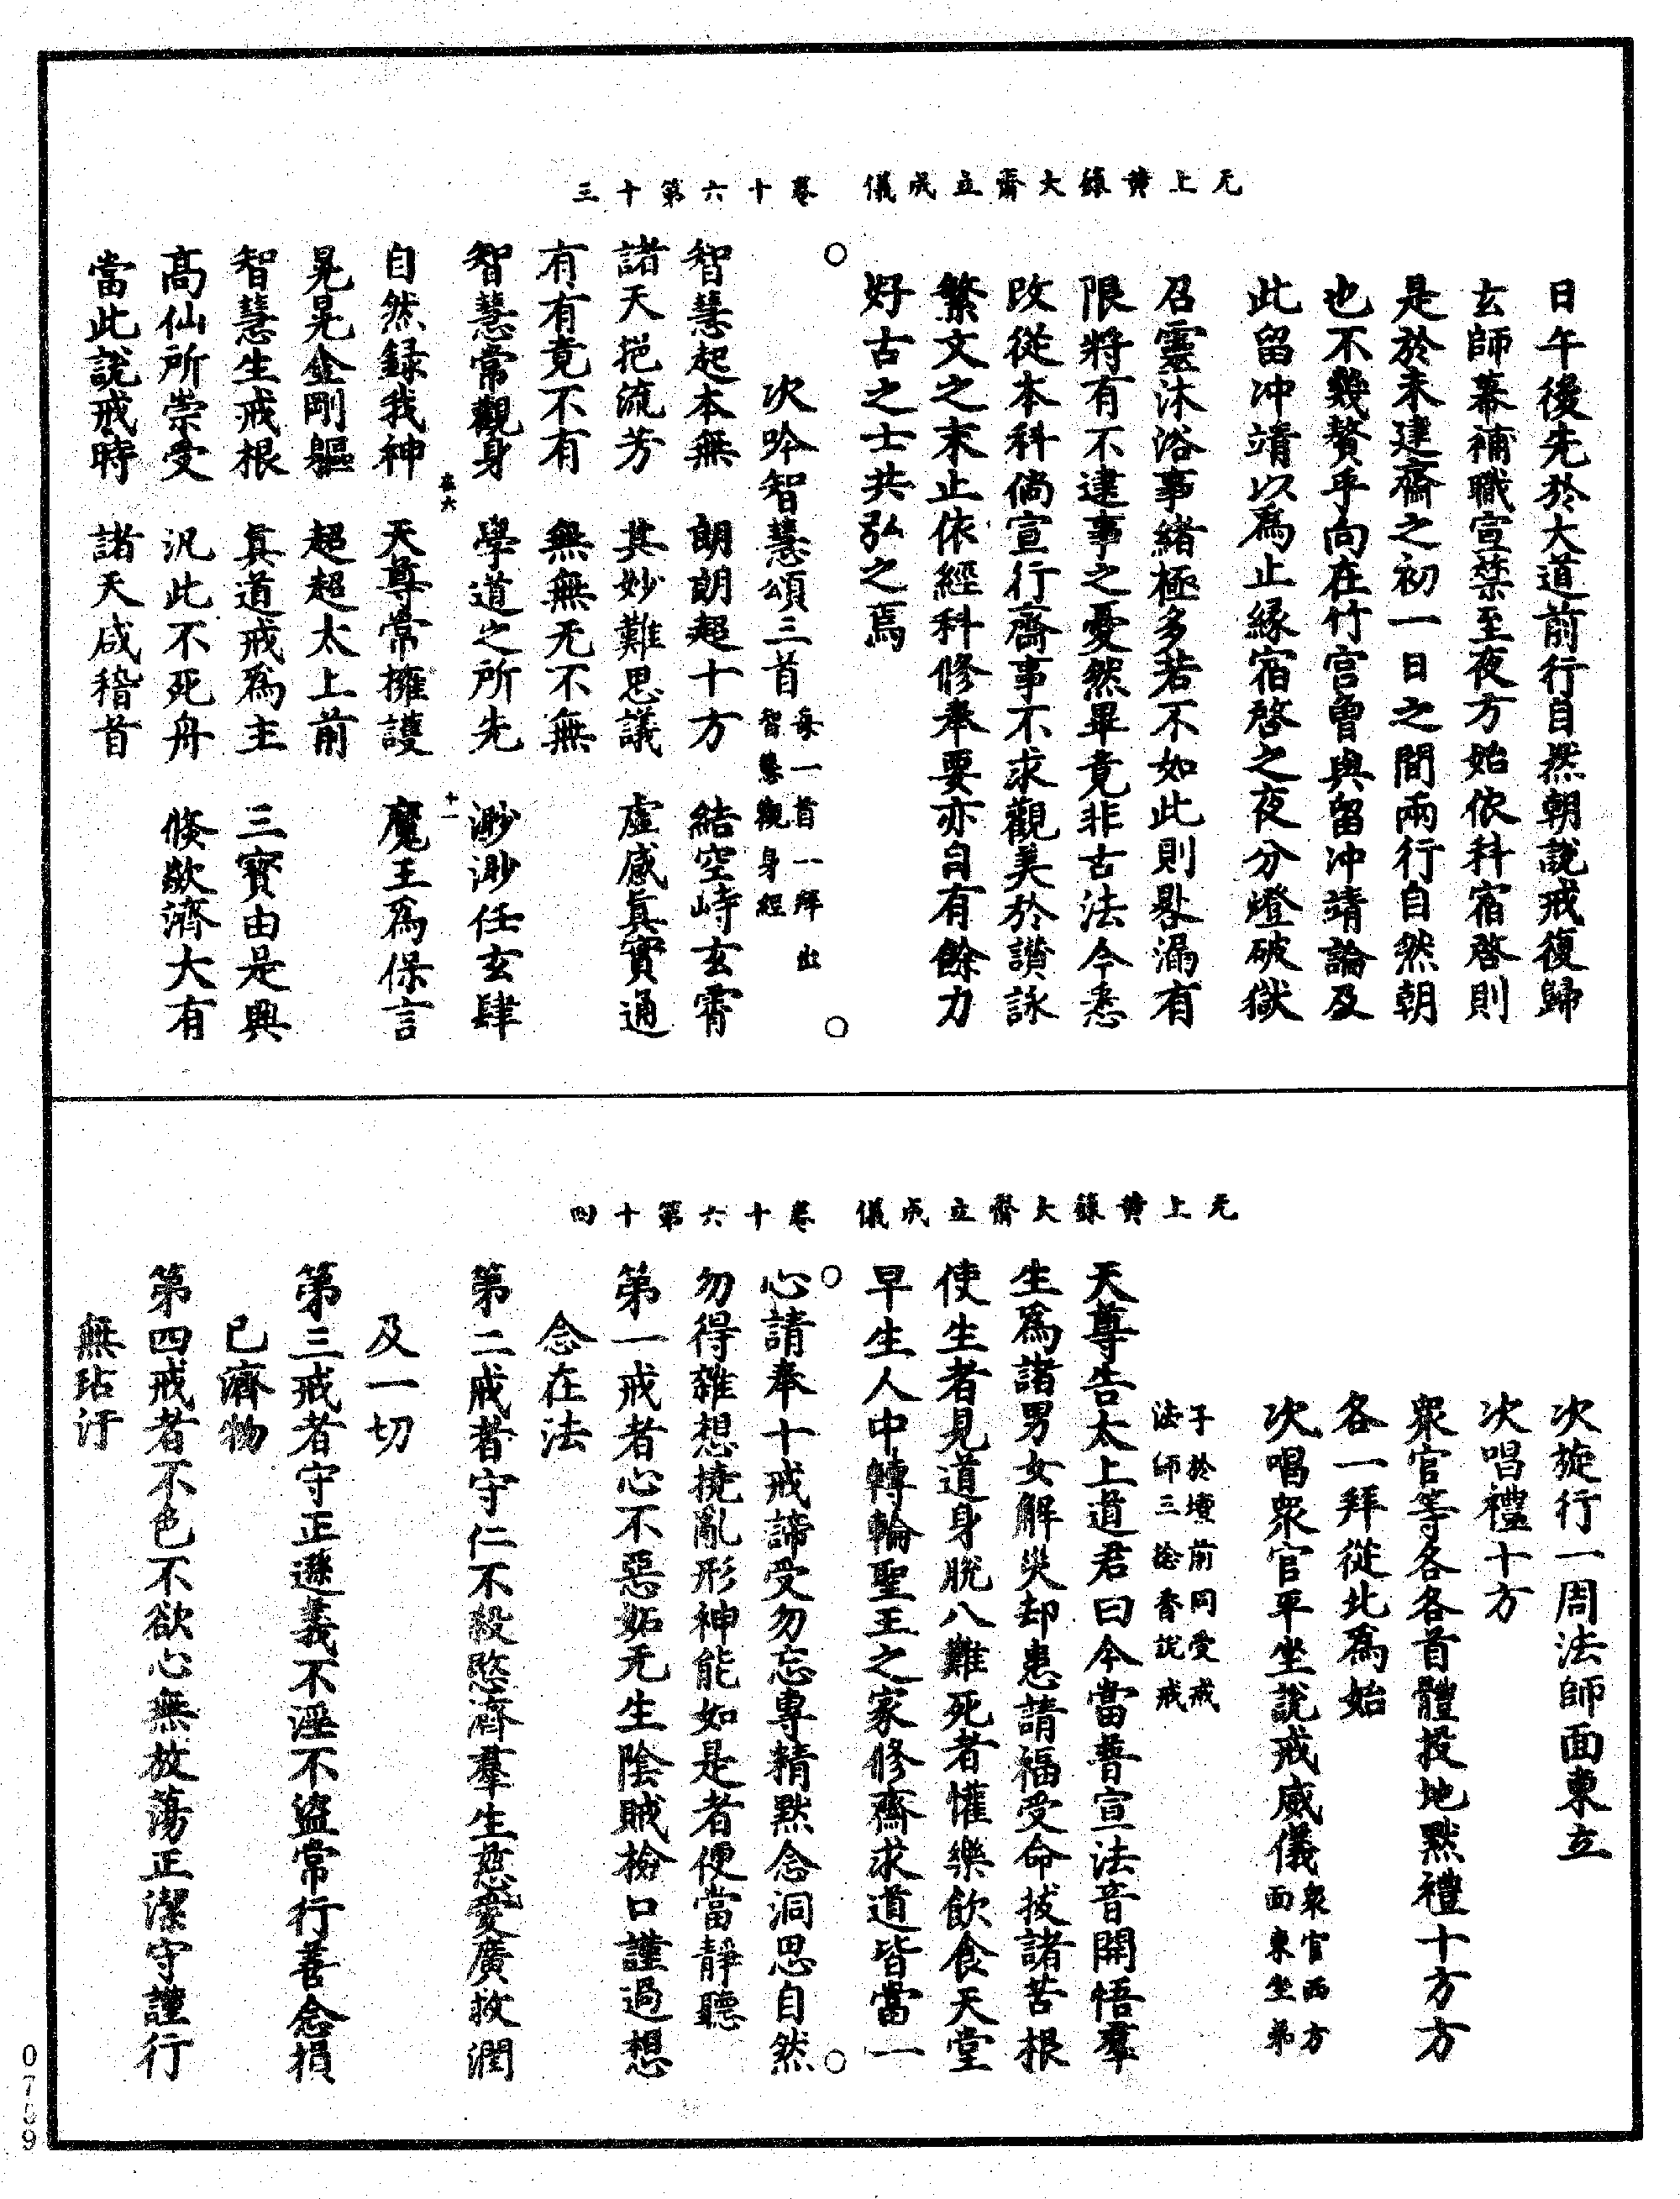 无上黃籙大齋立成儀 卷十六第十三
日午後先於大道前行自然朝說戒復歸
玄師幕補職宣禁至夜方始依科宿啓則
是於未建齋之初一日之間兩行自然朝
也不幾贅乎向在竹宫曾與留沖靖論及
此留冲靖以爲止緣宿啓之夜分燈破獄
召靈沐浴事緖極多若不如此則畧漏有
限將有不逮事之憂然畢竟非古法今悉
改從本科倘宣行齋事不求觀美於讃詠
繁文之末止依經科修奉要亦自有餘力
好古之士共弘之焉
○
次吟智慧頌三首 每一首一拜出智慧觀身經
○
智慧起本無 朗朗超十方 結空峙玄霄
諸天挹流芳 其妙難思議 虛感真實通
有有竟不有 無無无不無
智慧常觀身 學道之所先 渺渺任玄肆
在六 十一
自然録我神 天尊常擁護 魔王爲保言
晃晃金剛軀 超超太上前
智慧生戒根 眞道戒爲主 三寶由是興
高仙所崇受 汎此不死舟 倏欻濟大有
當此說戒時 諸天咸稽首
无上黃籙大齋立成儀 卷十六第十四
次旋行一周法師面東立
次唱禮十方
衆官等各各首體投地默禮十方方
各一拜從北爲始
次唱衆官平坐說戒威儀 衆官西方面東坐弟
子於壇前同受戒法師三捻香說戒
天尊告太上道君曰今當普宣法音開悟羣
生爲諸男女解災却患請福受命拔諸苦根
使生者見道身脫八難死者懽樂飲食天堂
早生人中轉輪聖王之家修齋求道皆當一
○
○
心請奉十戒諦受勿忘專精默念洞思自然
勿得雜想撓亂形神能如是者便當靜聽
第一戒者心不惡妬无生陰賊檢口謹過想
念在法
第二戒者守仁不殺愍濟羣生慈愛廣救潤
及一切
第三戒者守正遜義不淫不盜常行善念損
己濟物
第四戒者不色不欲心無放蕩正潔守謹行
無玷汙